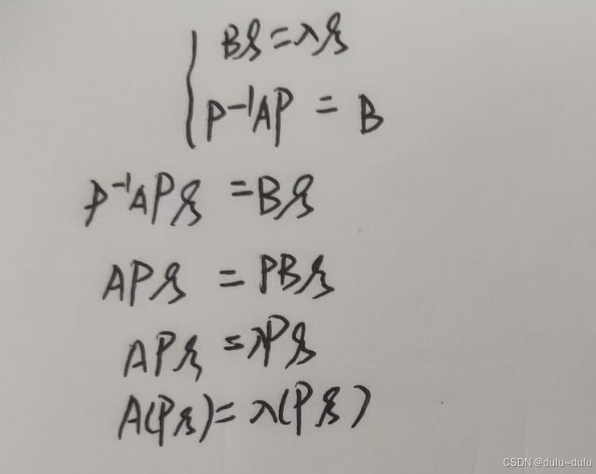 Bξ=λξ
P⁻¹AP = B
P⁻¹APξ =Bξ
APξ = PBξ
APξ =λPξ
A(Pξ)= λ(Pξ)
CSDN @dulu~dulu